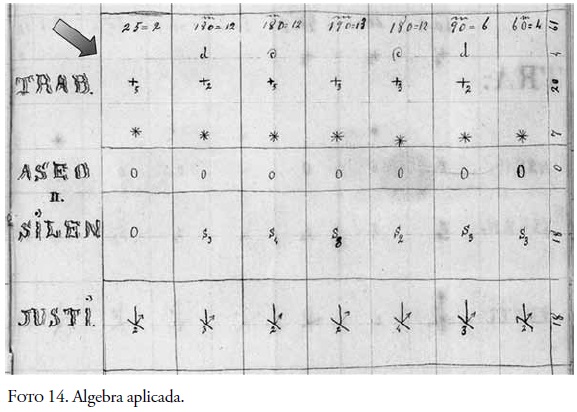 25=2 130=12 180=12 190=13 180=12 90=6 60=4 61
d @ @ d 4
TRAB. +5 +2 +5 +3 +3 +2 20
* * * * * * * 7
ASEO 0 0 0 0 0 0 0 0
II.
SÍLEN 0 S3 S4 S8 S2 S3 S3 18
JUSTI. 2 3 2 2 4 3 2 18
FOTO 14. Algebra aplicada.